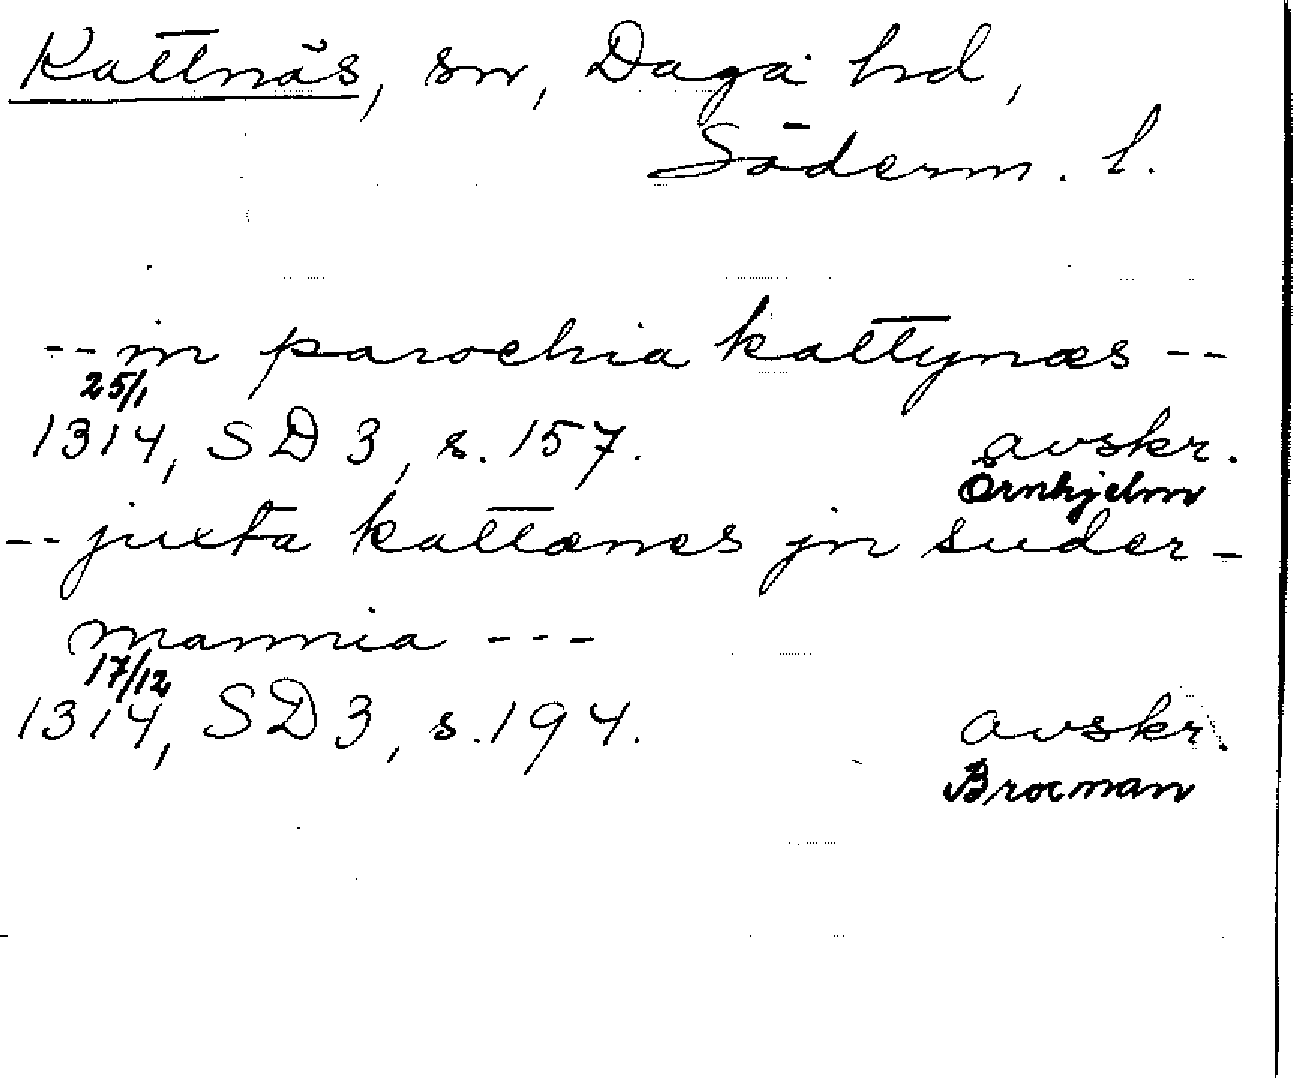 Kattnäs, sn, Daga hd,
Söderm. l.
-- in parochia kattynæs --
25/1
1314, SD 3, s. 157. avskr.
Örnhjelm
-- juxta kattænes jn suder-
mannia ---
17/12
1314, SD 3, s. 194. avskr.
Brocman